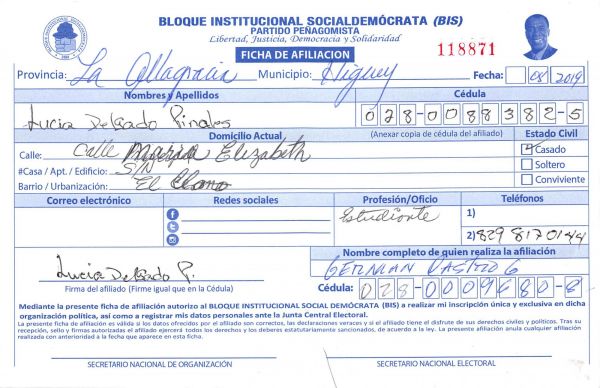 BLOQUE INSTITUCIONAL SOCIALDEMÓCRATA (BIS)
PARTIDO PEÑAGOMISTA
Libertad, Justicia, Democracia y Solidaridad
FICHA DE AFILIACION
118871
Provincia: La Altagracia Municipio: Higuey Fecha: 08 2019
Nombres y Apellidos Cédula
Lucia Delgado Pinales 028-0088382-5
Domicilio Actual (Anexar copia de cédula del afiliado) Estado Civil
Calle: Calle Elizabeth Casado
#Casa / Apt. / Edificio: S/N Soltero
Barrio / Urbanización: El Llano Conviviente
Correo electrónico Redes sociales Profesión/Oficio Teléfonos
Estudiante 1)
2) 829 8170144
Nombre completo de quien realiza la afiliación
Lucia Delgado P. GERMAN CASTRO G
Firma del afiliado (Firme igual que en la Cédula) Cédula: 028-0009680-8
Mediante la presente ficha de afiliación autorizo al BLOQUE INSTITUCIONAL SOCIAL DEMÓCRATA (BIS) a realizar mi inscripción única y exclusiva en dicha
organización política, así como a registrar mis datos personales ante la Junta Central Electoral.
La presente ficha de afiliación es válida si los datos ofrecidos por el afiliado son correctos, las declaraciones veraces y si el afiliado tiene el disfrute de sus derechos civiles y políticos. Tras su
recepción, sello y firmas autorizadas el afiliado ejercerá todos los derechos y los deberes estatutariamente sancionados, de acuerdo a la ley. La presente afiliación anula cualquier afiliación
realizada con anterioridad a la fecha que aparece en esta ficha.
SECRETARIO NACIONAL DE ORGANIZACIÓN SECRETARIO NACIONAL ELECTORAL